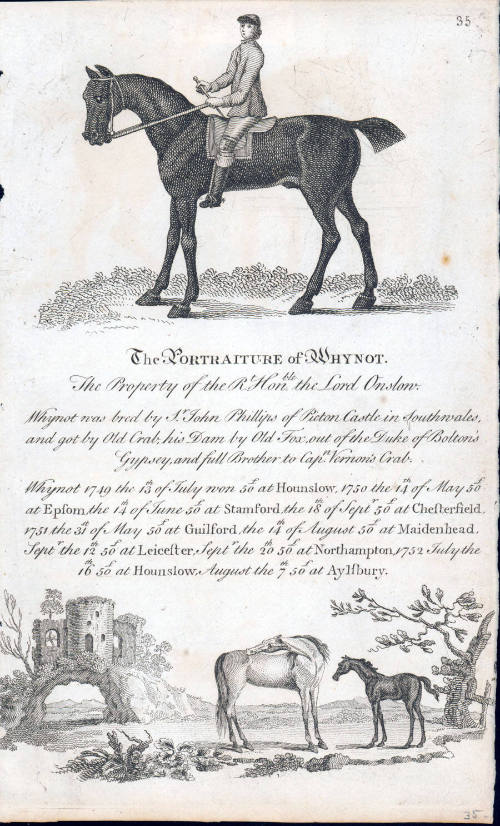 35
The PORTRAITURE of WHYNOT.
The Property of the Rt. Honble. the Lord Onslow.
Whynot was bred by Sr. John Phillips of Picton Castle in Southwales,
and got by Old Crab, his Dam by Old Fox, out of the Duke of Bolton's
Gypsey, and full Brother to Capn. Vernon's Crab.
Whynot 1749 the 13th of July won 50£ at Hounslow, 1750 the 14th of May 50£
at Epsom, the 14th of June 50£ at Stamford, the 18th of Septr. 50£ at Chesterfield.
1751 the 31st of May 50£ at Guilford, the 14th of August 50£ at Maidenhead.
Septr. the 12th 50£ at Leicester, Septr. the 20th 50£ at Northampton, 1752 July the
16th 50£ at Hounslow, August the 7th 50£ at Aylsbury.
35